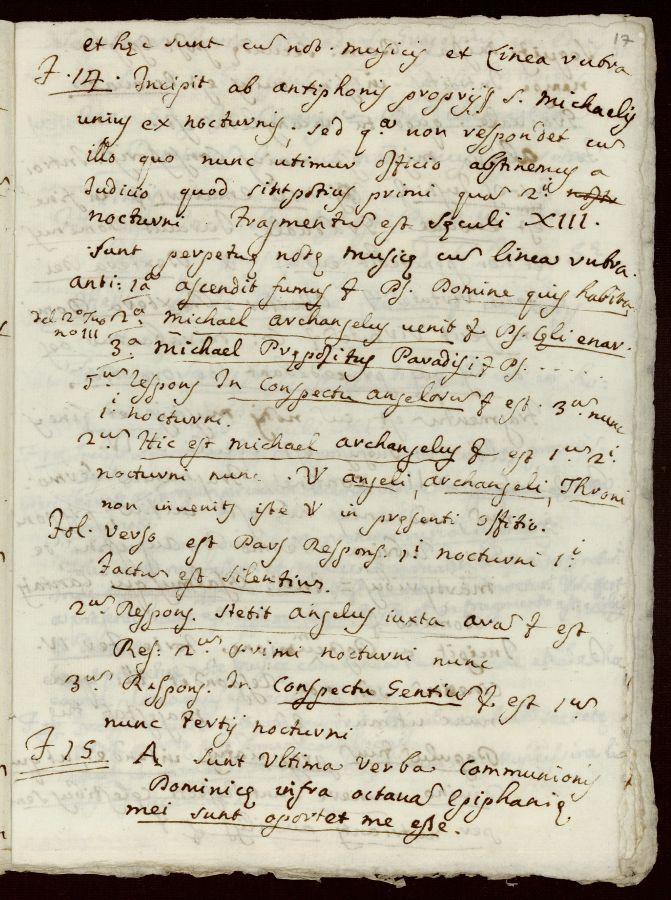 17
et hęc sunt cuɜ not. musicis et Linea rubra
F. 14. Incipit ab antiphonis proprijs S. Michaelis
unius ex nocturnis, sed qᵃ non respondet cuɜ
illo quo nunc utimur officio abstinemus a
Iudicio quod sint potius primi quaɜ 2ⁱ
nocturni Fragmentuɜ est Sęculi XIII.
Sunt perpetuę notę musicę cuɜ linea rubra.
anti: 1ᵃ ascendit fumus & Ps. Domine quis habita.
del 2º Tuo nº III
2ᵃ. Michael archangelus uenit & Ps. Cęli enar.
3ᵃ Michael Prępositus Paradisi & Ps. . . . .
1ᵘˢ Respons In conspectu angeloruɜ & est. 3ᵘˢ nunc
1ⁱ nocturni.
2ᵘˢ Hic est Michael archangelus & est 1ᵘˢ 2ⁱ
nocturni nunc. V angeli, archangeli, Throni
non inuenitʒ iste V in pręsenti Offitio.
Fol. verso est Pars Respons 1ⁱ nocturni 1ⁱ
Factuɜ est silentiuɜ.
2ᵘˢ Respons. Stetit angelus iuxta araɜ & est
Res. 2ᵘˢ Primi nocturni nunc
3ᵘˢ Respons. In Conspectu Gentiuɜ & est 1ᵘˢ
nunc Tertij nocturni
F 15. A sunt Vltima verba Communionis
Dominicę infra octaua Epiphanię
mei sunt oportet me esse.